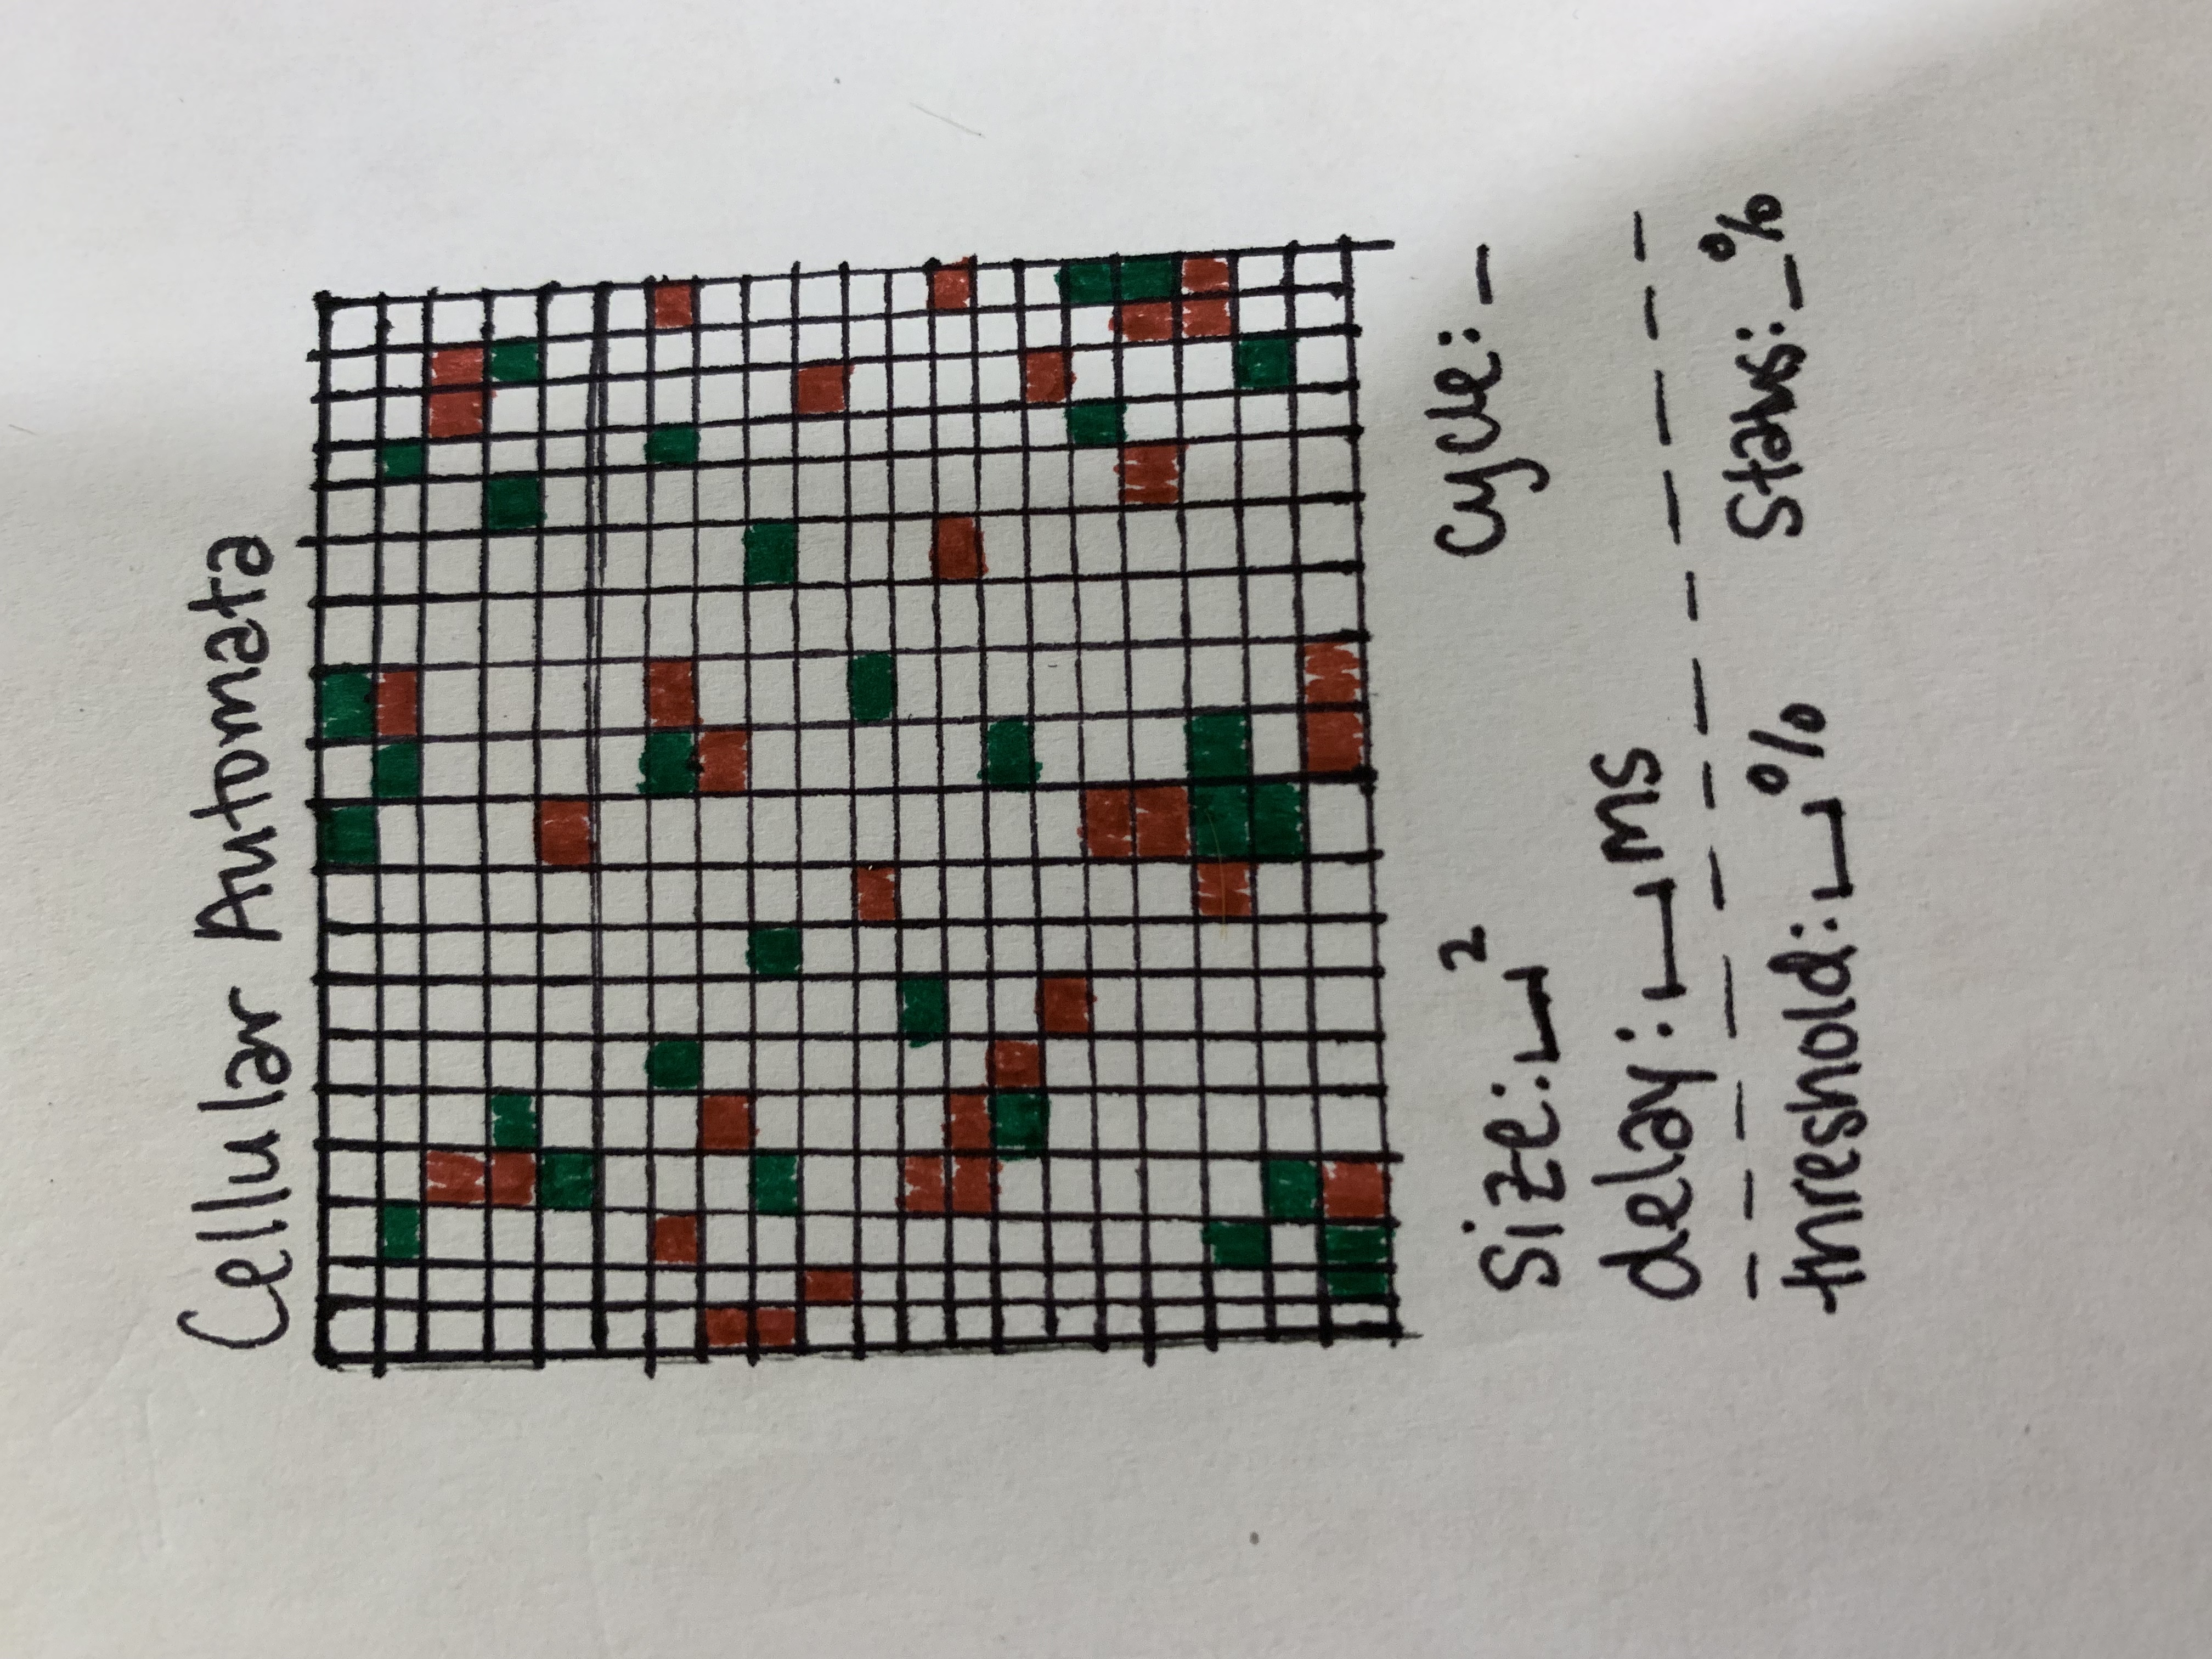 Cellular Automata
size: ⎵²
cycle: _
delay: ⎵ ms
threshold: ⎵ %
status: _ %